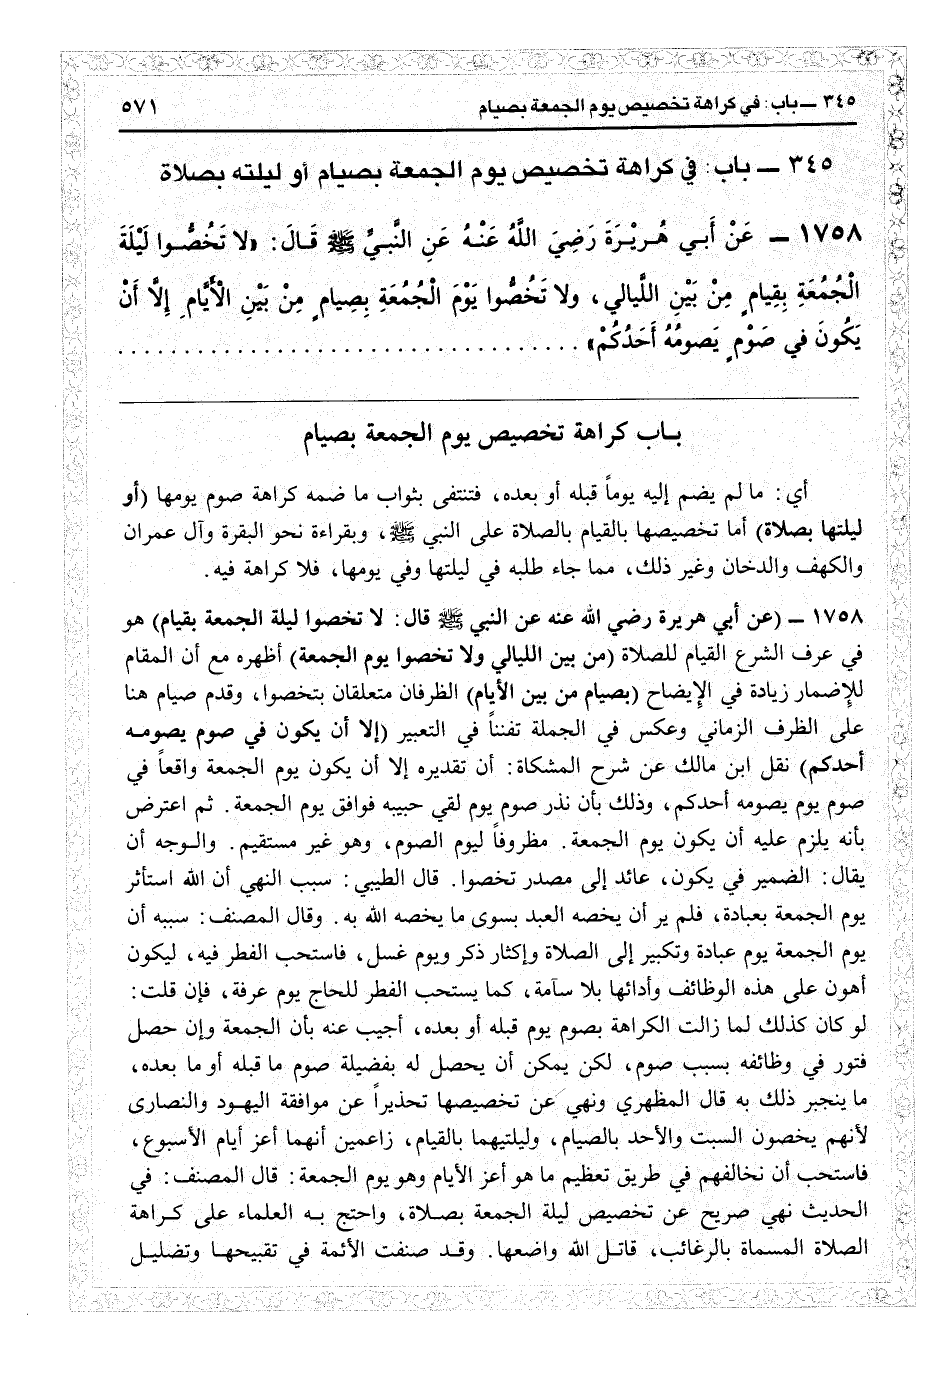 ٣٤٥ ــ باب: في كراهة تخصيص يوم الجمعة بصيام
٥٧١
٣٤٥ ــ باب: في كراهة تخصيص يوم الجمعة بصيام أو ليلته بصلاة
١٧٥٨ ــ عَنْ أَبي هُريْرَةَ رَضِيَ اللَّهُ عَنْهُ عَنِ النَّبيِّ ﷺ قَالَ: «لا تَخُصُّوا لَيْلَةَ
الْجُمُعَةِ بِقِيامٍ مِنْ بَيْنِ اللَّيالي، ولا تَخُصُّوا يَوْمَ الْجُمُعَةِ بِصِيامٍ مِنْ بَيْنِ الْأَيَّامِ إلَّا أنْ
يَكُونَ في صَوْمٍ يَصومُهُ أَحَدُكُمْ» . . . . . . . . . . . . . . . . . . . . . . . . . . . . . . . . . .
باب كراهة تخصيص يوم الجمعة بصيام
أي: ما لم يضم إليه يوماً قبله أو بعده، فتنتفى بثواب ما ضمه كراهة صوم يومها (أو
ليلتها بصلاة) أما تخصيصها بالقيام بالصلاة على النبي ﷺ، وبقراءة نحو البقرة وآل عمران
والكهف والدخان وغير ذلك، مما جاء طلبه في ليلتها وفي يومها، فلا كراهة فيه.
١٧٥٨ ــ (عن أبي هريرة رضي الله عنه عن النبي ﷺ قال: لا تخصوا ليلة الجمعة بقيام) هو
في عرف الشرع القيام للصلاة (من بين الليالي ولا تخصوا يوم الجمعة) أظهره مع أن المقام
للإضمار زيادة في الإيضاح (بصيام من بين الأيام) الظرفان متعلقان بتخصوا، وقدم صيام هنا
على الظرف الزماني وعكس في الجملة تفنناً في التعبير (إلا أن يكون في صوم يصومه
أحدكم) نقل ابن مالك عن شرح المشكاة: أن تقديره إلا أن يكون يوم الجمعة واقعاً في
صوم يوم يصومه أحدكم، وذلك بأن نذر صوم يوم لقي حبيبه فوافق يوم الجمعة. ثم اعترض
بأنه يلزم عليه أن يكون يوم الجمعة. مظروفاً ليوم الصوم، وهو غير مستقيم. والوجه أن
يقال: الضمير في يكون، عائد إلى مصدر تخصوا. قال الطيبي: سبب النهي أن الله استأثر
يوم الجمعة بعبادة، فلم ير أن يخصه العبد بسوى ما يخصه الله به. وقال المصنف: سببه أن
يوم الجمعة يوم عبادة وتكبير إلى الصلاة وإكثار ذكر ويوم غسل، فاستحب الفطر فيه، ليكون
أهون على هذه الوظائف وأدائها بلا سآمة، كما يستحب الفطر للحاج يوم عرفة، فإن قلت:
لو كان كذلك لما زالت الكراهة بصوم يوم قبله أو بعده، أجيب عنه بأن الجمعة وإن حصل
فتور في وظائفه بسبب صوم، لكن يمكن أن يحصل له بفضيلة صوم ما قبله أو ما بعده،
ما ينجبر ذلك به قال المظهري ونهي عن تخصيصها تحذيراً عن موافقة اليهود والنصارى
لأنهم يخصون السبت والأحد بالصيام، وليلتيهما بالقيام، زاعمين أنهما أعز أيام الأسبوع،
فاستحب أن نخالفهم في طريق تعظيم ما هو أعز الأيام وهو يوم الجمعة: قال المصنف: في
الحديث نهي صريح عن تخصيص ليلة الجمعة بصلاة، واحتج به العلماء على كراهة
الصلاة المسماة بالرغائب، قاتل الله واضعها. وقد صنفت الأئمة في تقبيحها وتضليل